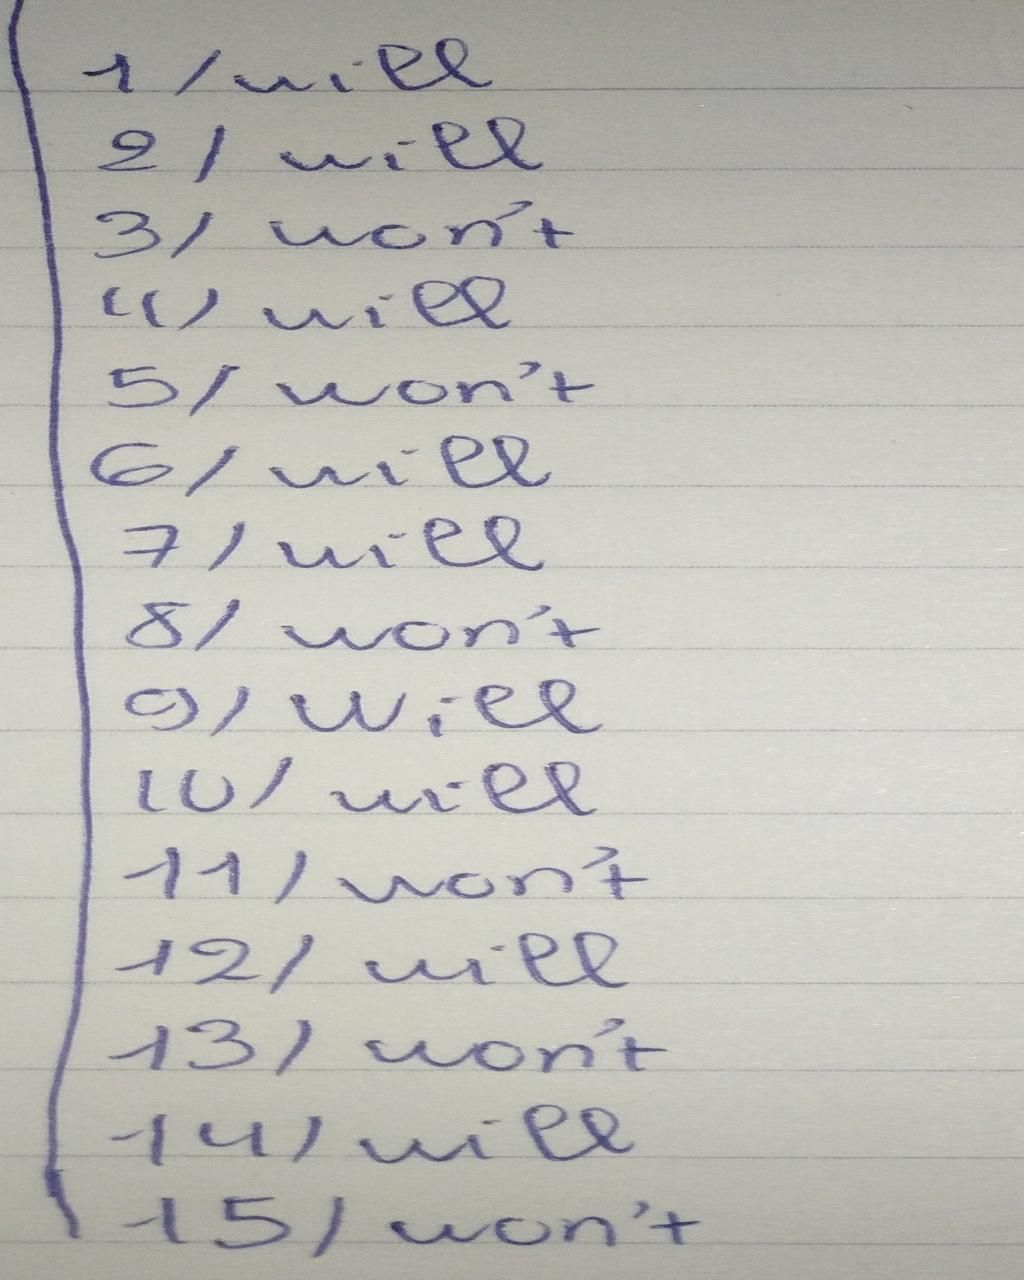 1/ will
2/ will
3/ won't
4/ will
5/ won't
6/ will
7/ will
8/ won't
9/ Will
10/ will
11/ won't
12/ will
13/ won't
14/ will
15/ won't